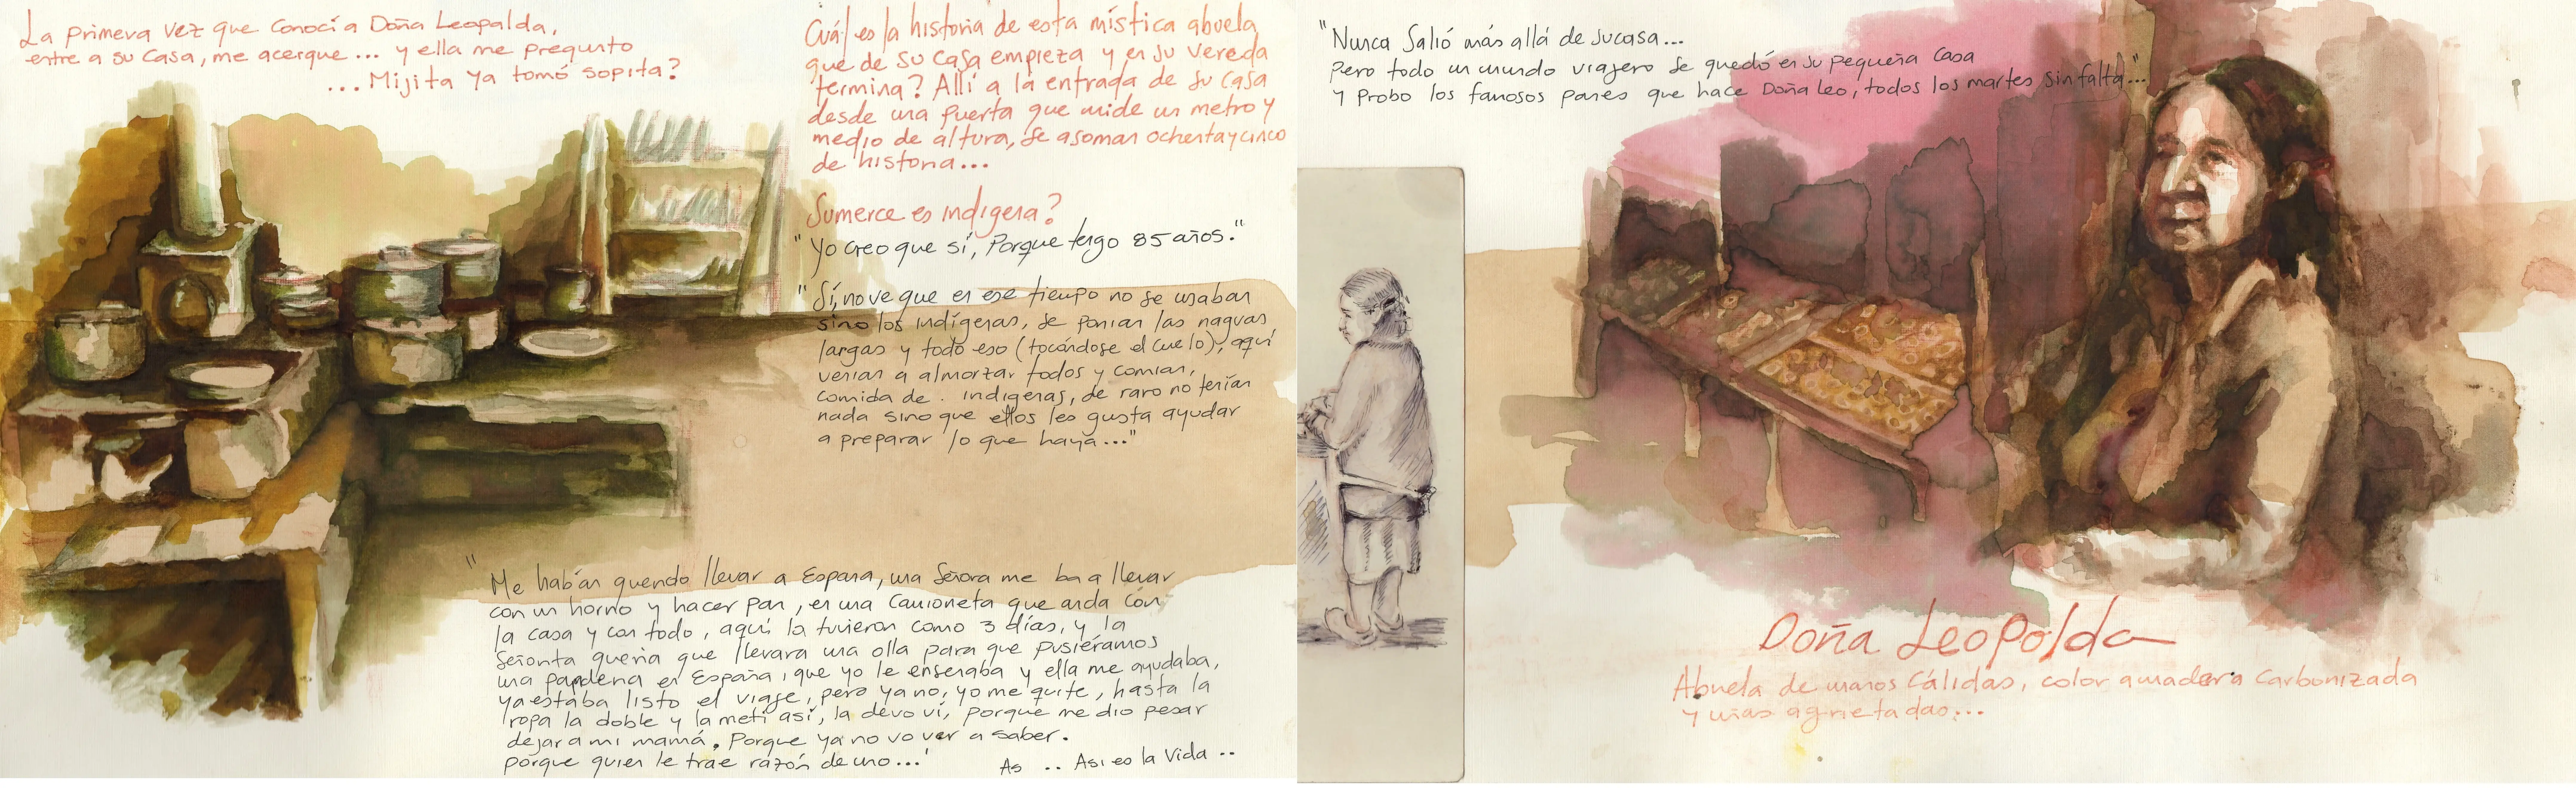 La primera vez que conocí a Doña Leopalda,
entre a su casa, me acerque... y ella me pregunto
...Mijita ya tomó sopita?
Cuál es la historia de esta mística abuela
que de su casa empieza y en su vereda
termina? Allí a la entrada de su casa
desde una puerta que mide un metro y
medio de altura, se asoman ochenta y cinco
de historia...
Sumerce es indígena?
"Yo creo que sí, Porque tengo 85 años."
"Sí, no ve que en ese tiempo no se usaban
sino los indígenas, se ponían las naguas
largas y todo eso (tocándose el cuello), aquí
venian a almorzar todos y comian,
comida de . indigenas, de raro no tenían
nada sino que ellos les gusta ayudar
a preparar lo que haya..."
"Me habían querido llevar a España, una Señora me ba a llevar
con un horno y hacer pan, en una camioneta que anda con
la casa y con todo, aquí la tuvieron como 3 días, y la
Señorita queria que llevara una olla para que pusiéramos
una panderia en España, que yo le enseñaba y ella me ayudaba,
ya estaba listo el viaje, pero ya no, yo me quite, hasta la
ropa la doble y la metí así, la devolví, porque me dio pesar
dejar a mi mamá. Porque ya no vo ver a saber.
porque quien le trae razón de uno..."
As .. Asi es la Vida ..
"Nunca Salió más allá de su casa...
Pero todo un mundo viajero se quedó en su pequeña casa
y Probo los famosos panes que hace Doña Leo, todos los martes sin falta..."
Doña Leopolda
Abuela de manos cálidas, color a madera carbonizada
y uñas agrietadas...